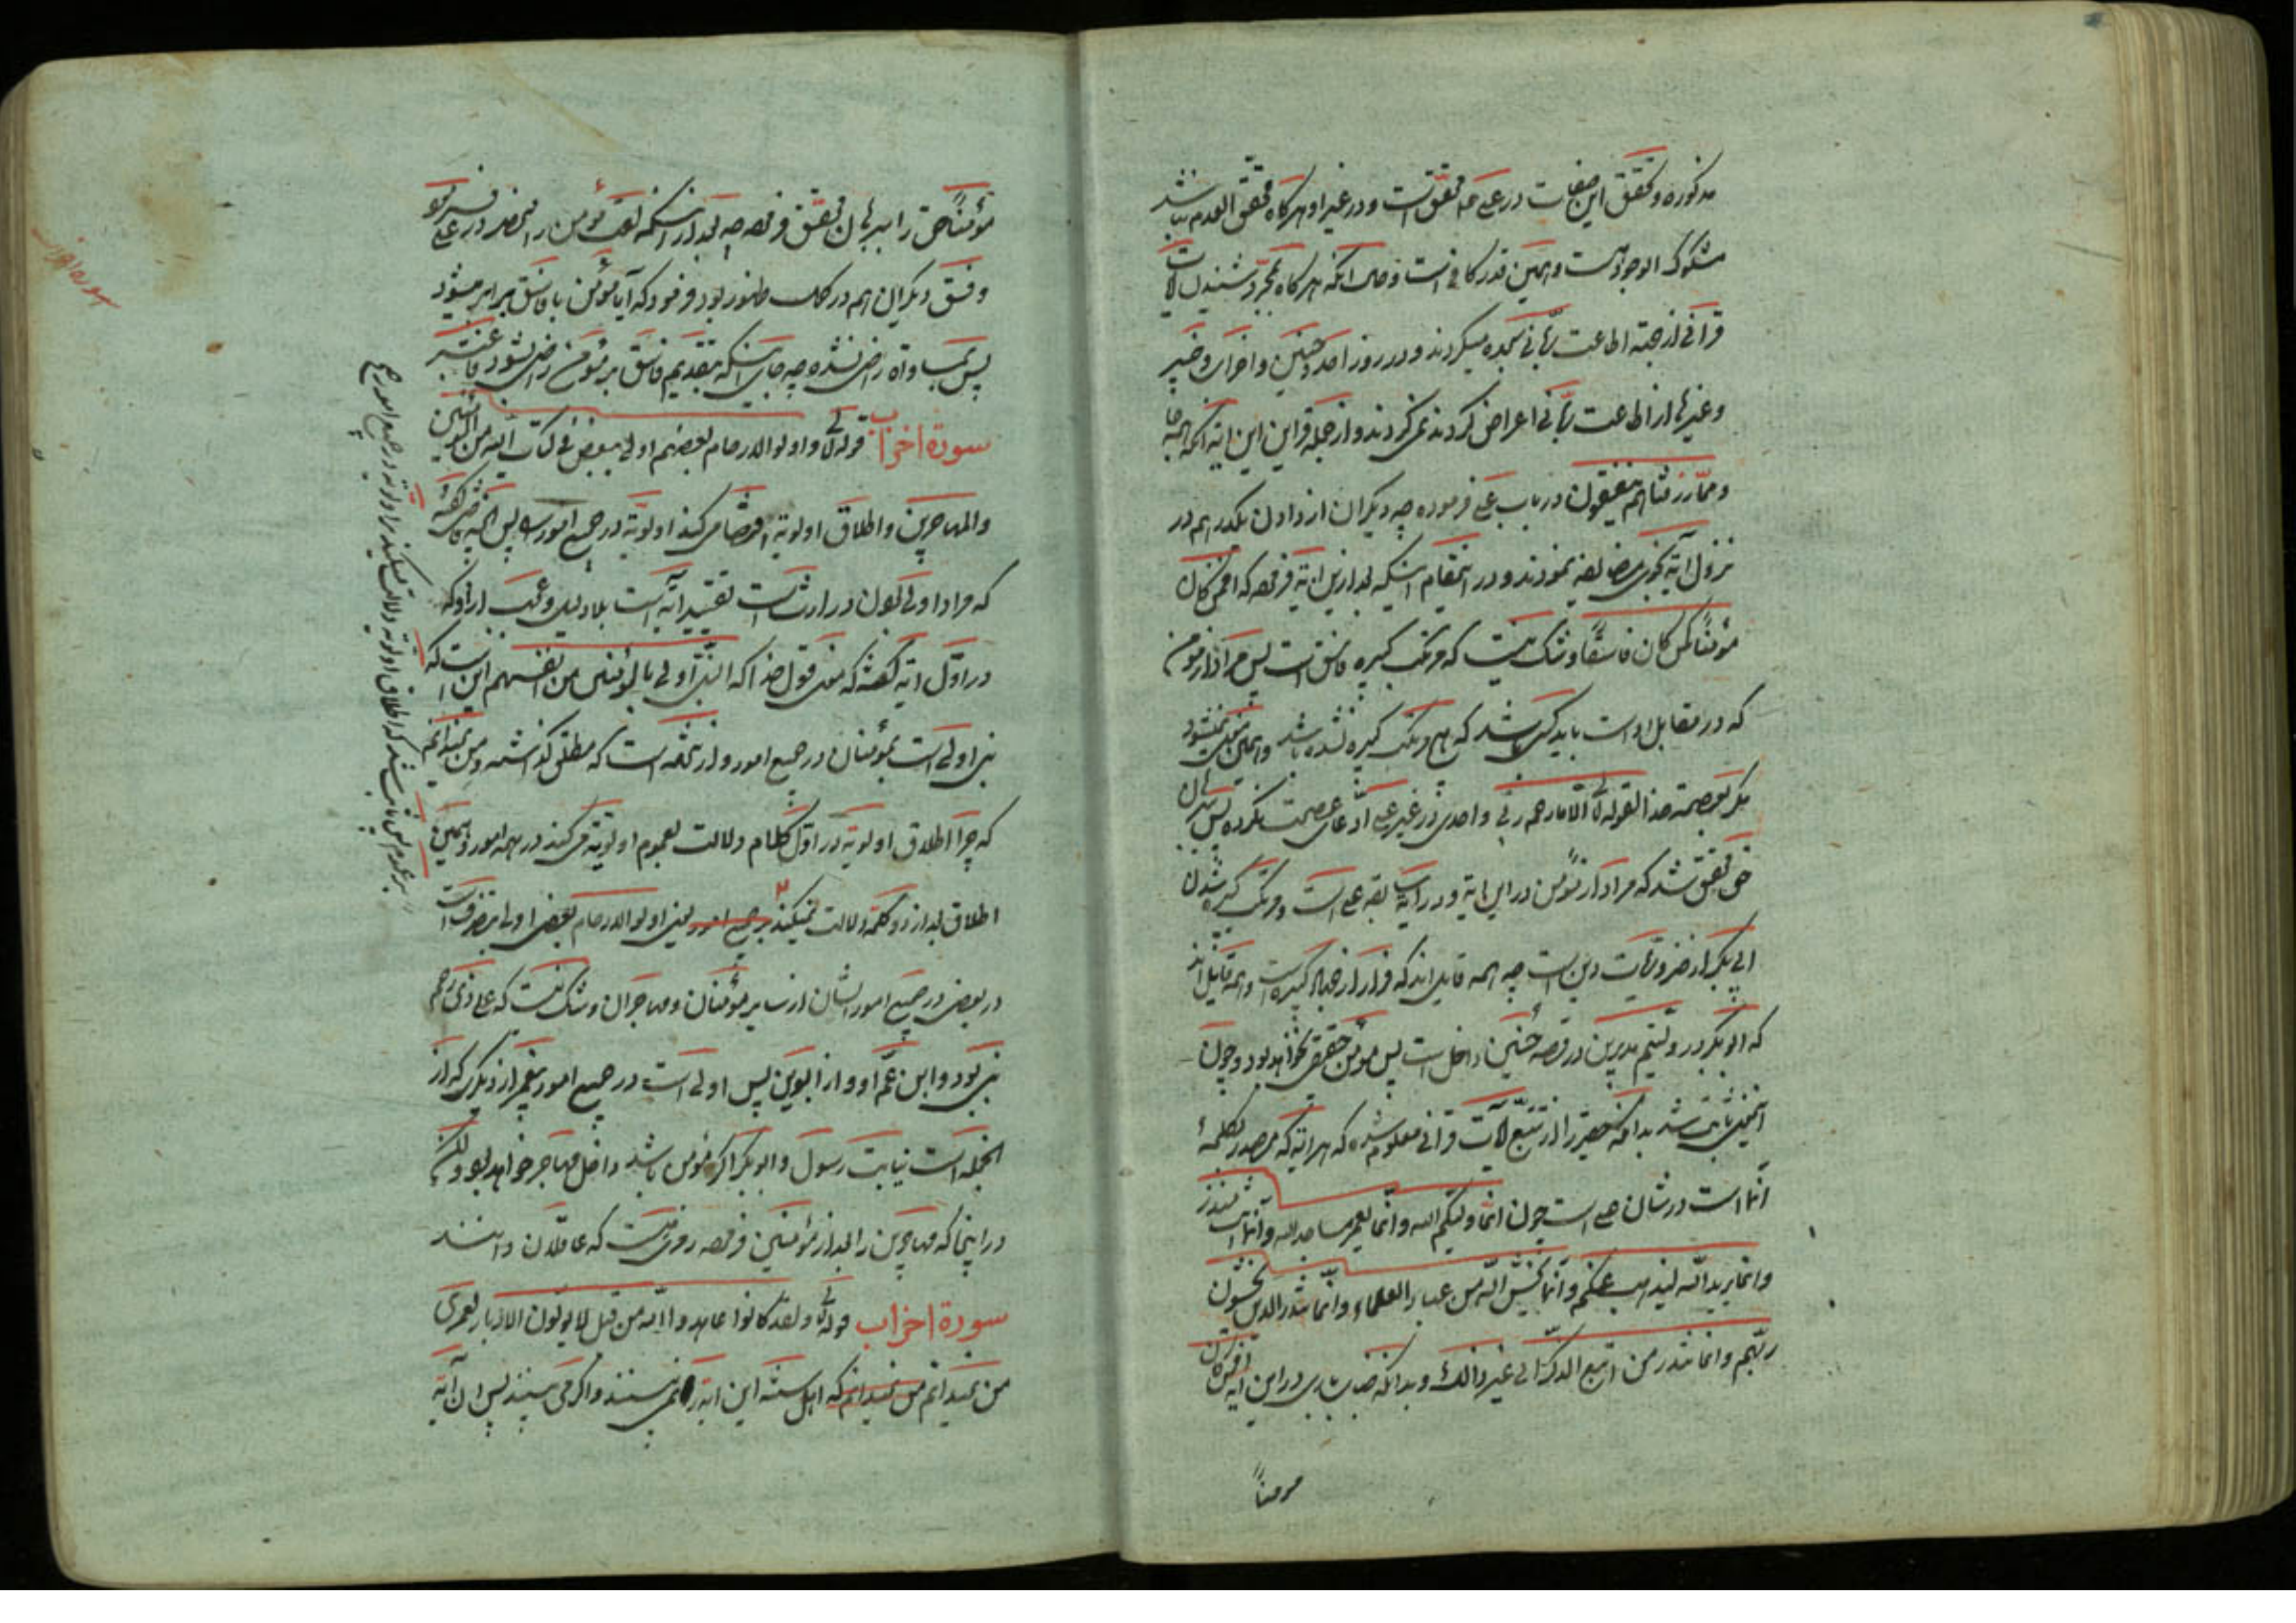 مذکوره و تحقق این صفات در علی محقق است و در غیر او هرکاه محقق العدم نباشد
مشکوک الوجود هست و همین قدر کافی است و حال آنکه هرکاه بمجرد شنیدن آیات
قرآنی از جهة اطاعت ربّانی سجده میکردند و در روز احد و حنین و احزاب و خیبر
و غیرها از اطاعت ربّانی اعراض کردند نمی کردند و از جمله قراین این آیه آنکه
و ممّا رزقناهم ینفقون در باب علی فرموده چه دیکران از دادن یکدرهم در
نزول آیه نجوی مضایقه نمودند و در این مقام اینکه بعد از این آیه فرموده که افمن کان
مؤمناً کمن کان فاسقاً و شک نیست که مرتکب کبیره فاسق است پس مراد از مومن
که در مقابل اوست باید کسی باشد که هیچ مرتکب کبیره نشده باشد و این نمیشود
مکر بعصمة خدا لقوله تع الّا ما رحم ربّی و احدی در غیر علی ادّعای عصمت نکرده پس
حق تحقق شد که مراد از مؤمن در این آیة و در آیه سابقه علی است و مرتکب کبیره شدن
ابی بکر از ضروریّات دین است چه همه قایل اند که فرار از جهاد کبیره است و همه قایل اند
که ابو بکر در ولّیتم مدبرین در قصه حنین داخل است پس مومن حقیقی نخواهد بود و چون
اینمعنی ثابت شد بدانکه حقیر را از تتبّع آیات قرآنی معلوم شده که هر آیه که مصدر بکلمهٔ
انّما است در شان علی است چون انّما ولیّکم الله و انّما یعمر مساجد الله و انّما انت منذر
و انّما یرید الله لیذهب عنکم و انّما یخشی الله من عباده العلماء و انّما تنذر الذین یخشون
ربّهم و انّما تنذر من اتبع الذکر الی غیر ذالک و بدانکه جناب باری در این آیه
مومناً
مؤمناً حق را ببرهان تحقق فرموده چه بعد از اینکه لفظ مؤمن را منحصر در علی
و فسق دیکران هم در کمال ظهور بود فرمود که آیا مؤمن با فاسق برابر میشود
پس بمساواة راضی نشده چه جای اینکه بتقدیم فاسق بر مؤمن راضی بشود فاعتبر
سورة احزاب قوله تع و اولوا الارحام بعضهم اولی ببعض فی کتاب الله من المؤمنین
والمهاجرین و اطلاق اولویة اقتضا می کند اولویّة در جمیع امور را پس
که مراد اولی بودن در ارث است تقیید آیه است بلا دلیل و عجب از او که
در اوّل آیه کفته که معنی قول خدا که النّبی اولی بالمؤمنین من انفسهم این است که
نبی اولی است بمؤمنان در جمیع امور و از جهة است که مطلق کذاشته و من نمیدانم
که چرا اطلاق اولویة در اوّل کلام دلالت بعموم اولویّة می کند در همه امور و همین
اطلاق بعد از دو کلمه دلالت نمیکند بر جمیع امور یعنی اولوا الارحام بعضی اولی بتصرف است
در بعضی در جمیع امور ایشان از سایر مؤمنان و مهاجران و شک نیست که علی ذی رحم
نبی بود و ابن عمّ او و از ابوین پس اولی است در جمیع امور پیغمبر از دیکری که از
انجمله است نیابت رسول و ابو بکر اکر مؤمن باشد داخل مهاجر خواهد بود و لیکن
در اینجا که مهاجرین را بعد از مؤمنین فرموده رمزی هست که عاقلان دانند
سورة احزاب قوله تع و لقد کانوا عاهدوا الله من قبل لا یولّون الادبار لعمری
من نمیدانم من نمیدانم که اهل سنّه این آیه را نمی بینند و اکر می بینند پس ان آیه
بر عموم پس ثابت شد که اطلاق اولویة دلالت میکند بر اولویة در جمیع امور
سوره احزاب